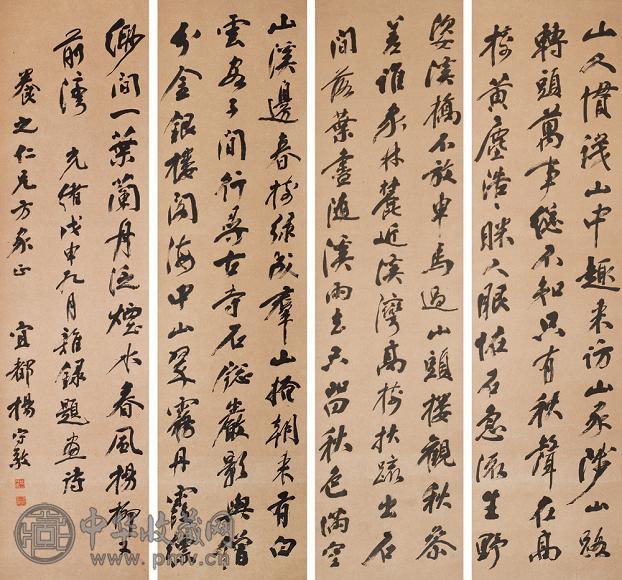 山人慣識山中趣来訪山家陟山路
轉頭萬事總不知只有秋聲在高
樹黃塵浩〻眯人眼怪石急流生野
姿溪橋不放車馬過山頭樓觀秋參
差誰家林麓近溪灣高樹扶疏出石
間落葉盡隨溪雨去只留秋色滿空
山溪邊春樹綠成羣山擁朝来有白
雲間行尋古寺石巖影與僧
分金銀樓閣海中山翠霧丹霞縹
緲間一葉蘭舟泛煙水春風楊柳
前灣 光緒戊申九月雜錄題畫詩
養之仁兄方家正 宜都楊守敬
中华收藏网
www.pmw.cn